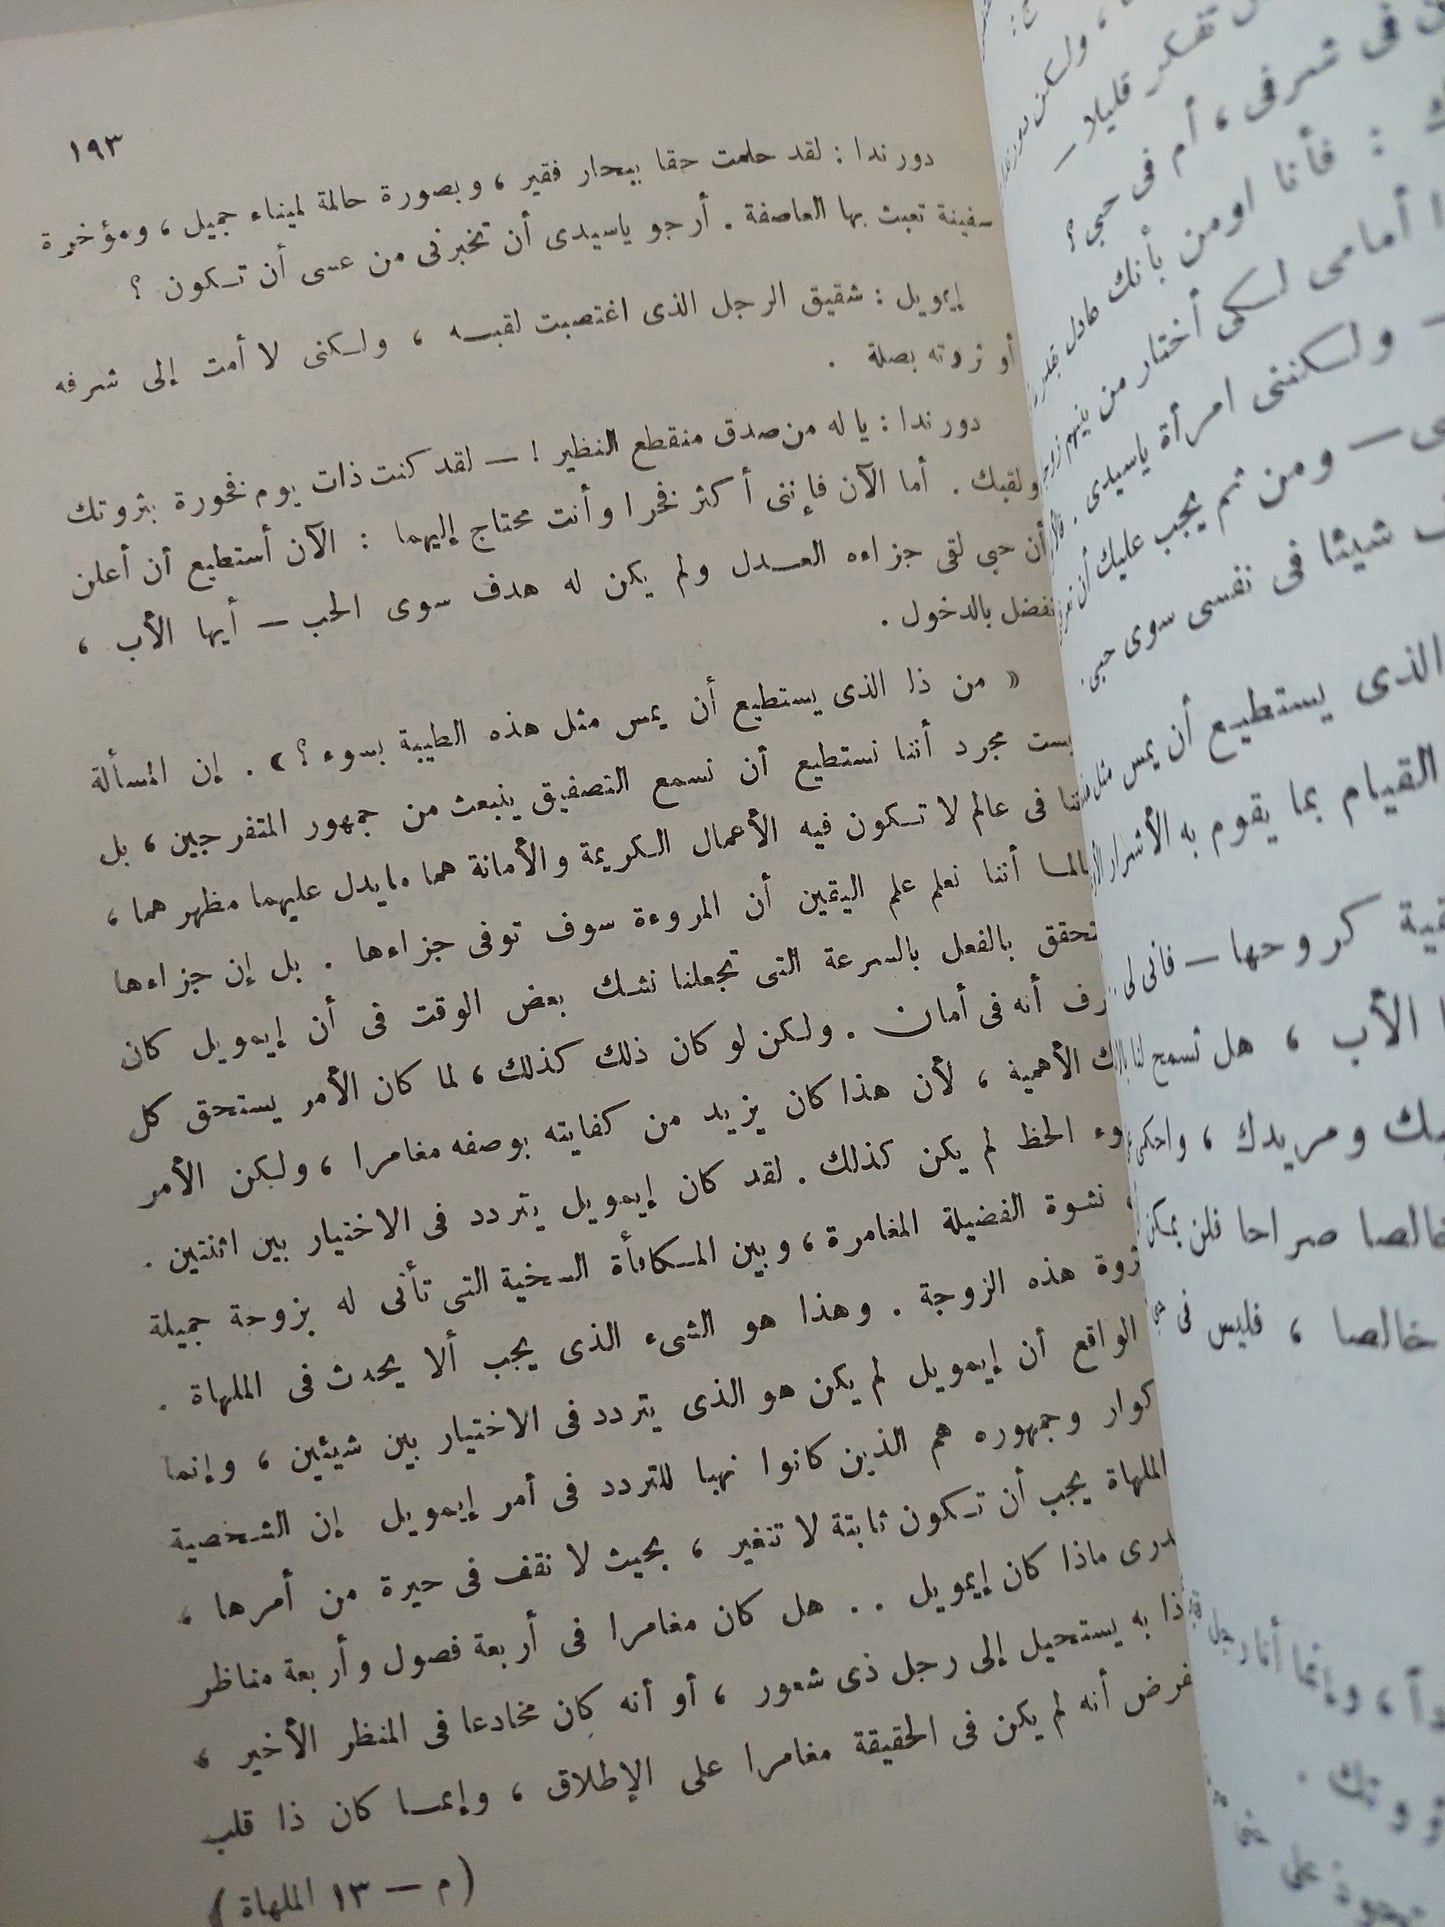 ١٩٣
دورندا : لقد حلمت حقا ببحار فقير ، وبصورة حالمة لميناء جميل ، ومؤخرة
سفينة تعبث بها العاصفة . أرجو ياسيدى أن تخبرنى من عسى أن تكون ؟
إيمويل : شقيق الرجل الذى اغتصبت لقبه ، ولكنى لا أمت إلى شرفه
أو ثروته بصلة .
دورندا : يا له من صدق منقطع النظير ! — لقد كنت ذات يوم فخورة بثروتك
ولقبك . أما الآن فإننى أكثر فخرا وأنت محتاج إليهما : الآن أستطيع أن أعلن
أن حبى لقى جزاءه العدل ولم يكن له هدف سوى الحب — أيها الأب ،
تفضل بالدخول .
« من ذا الذى يستطيع أن يمس مثل هذه الطيبة بسوء ؟ » . إن المسألة
مجرد أننا نستطيع أن نسمع التصفيق ينبعث من جمهور المتفرجين ، بل
فى عالم لا تكون فيه الأعمال الكريمة والأمانة هما ما يدل عليهما مظهرهما ،
أننا نعلم علم اليقين أن المروءة سوف توفى جزاءها . بل إن جزاءها
تحقق بالفعل بالسرعة التى تجعلنا نشك بعض الوقت فى أن إيمويل كان
أنه فى أمان . ولكن لو كان ذلك كذلك ، لما كان الأمر يستحق كل
الأهمية ، لأن هذا كان يزيد من كفايته بوصفه مغامرا ، ولكن الأمر
الحظ لم يكن كذلك . لقد كان إيمويل يتردد فى الاختيار بين اثنتين .
نشوة الفضيلة المغامرة ، وبين المكافأة السخية التى تأتى له بزوجة جميلة
ثروة هذه الزوجة . وهذا هو الشىء الذى يجب ألا يحدث فى الملهاة .
الواقع أن إيمويل لم يكن هو الذى يتردد فى الاختيار بين شيئين ، وإنما
وجمهوره هم الذين كانوا نهبا للتردد فى أمر إيمويل إن الشخصية
الملهاة يجب أن تكون ثابتة لا تتغير ، بحيث لا نقف فى حيرة من أمرها ،
ماذا كان إيمويل . . هل كان مغامرا فى أربعة فصول وأربعة مناظر
به يستحيل إلى رجل ذى شعور ، أو أنه كان مخادعا فى المنظر الأخير ،
أنه لم يكن فى الحقيقة مغامرا على الإطلاق ، وإنما كان ذا قلب
( م — ١٣ الملهاة )
تفكر قليلا —
فى شرفى ، أم فى حبى ؟
: فأنا اومن بأنك عادل
أمامى لكى أختار من بينهم
— ولكننى امرأة ياسيدى .
— ومن ثم يجب عليك أن
شيئا فى نفسى سوى حبى .
الذى يستطيع أن يمس مثل
القيام بما يقوم به الأشرار
كروحها — فانى
الأب ، هل تسمح لنا
ومريدك ،
خالصا صراحا فلن يمكن
خالصا ، فليس فى
، وإنما أنا رجل